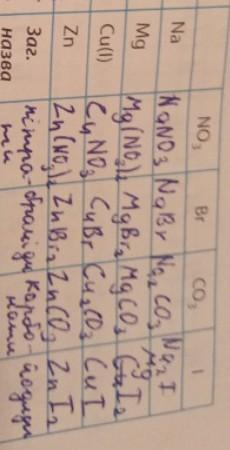 NO₃ Br CO₃ I
Na NaNO₃ NaBr Na₂CO₃ Na₂I
Mg Mg(NO₃)₂ MgBr₂ MgCO₃ MgI₂
Cu(I) CuNO₃ CuBr Cu₂CO₃ CuI
Zn Zn(NO₃)₂ ZnBr₂ ZnCO₃ ZnI₂
Заг. нітра- броміди карбо- йодиди
назва ти нати